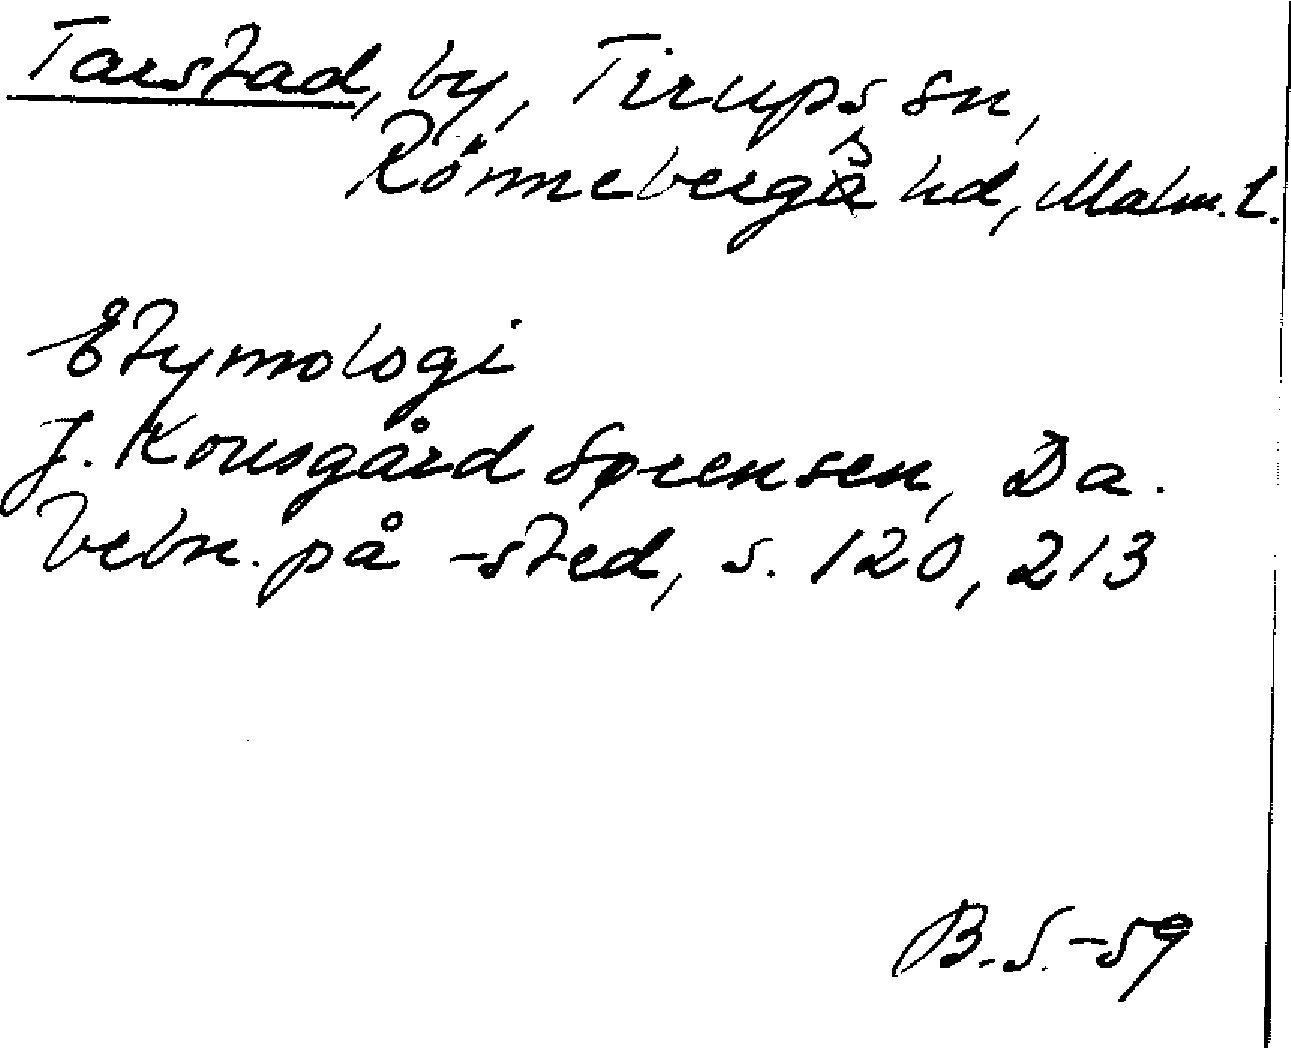 Tarstad, by, Tirups sn,
Rönnebergs hd, Malm. l.
Etymologi
J. Kousgård Sørensen, Da.
bebn. på -sted, s. 120, 213
B.S.-59